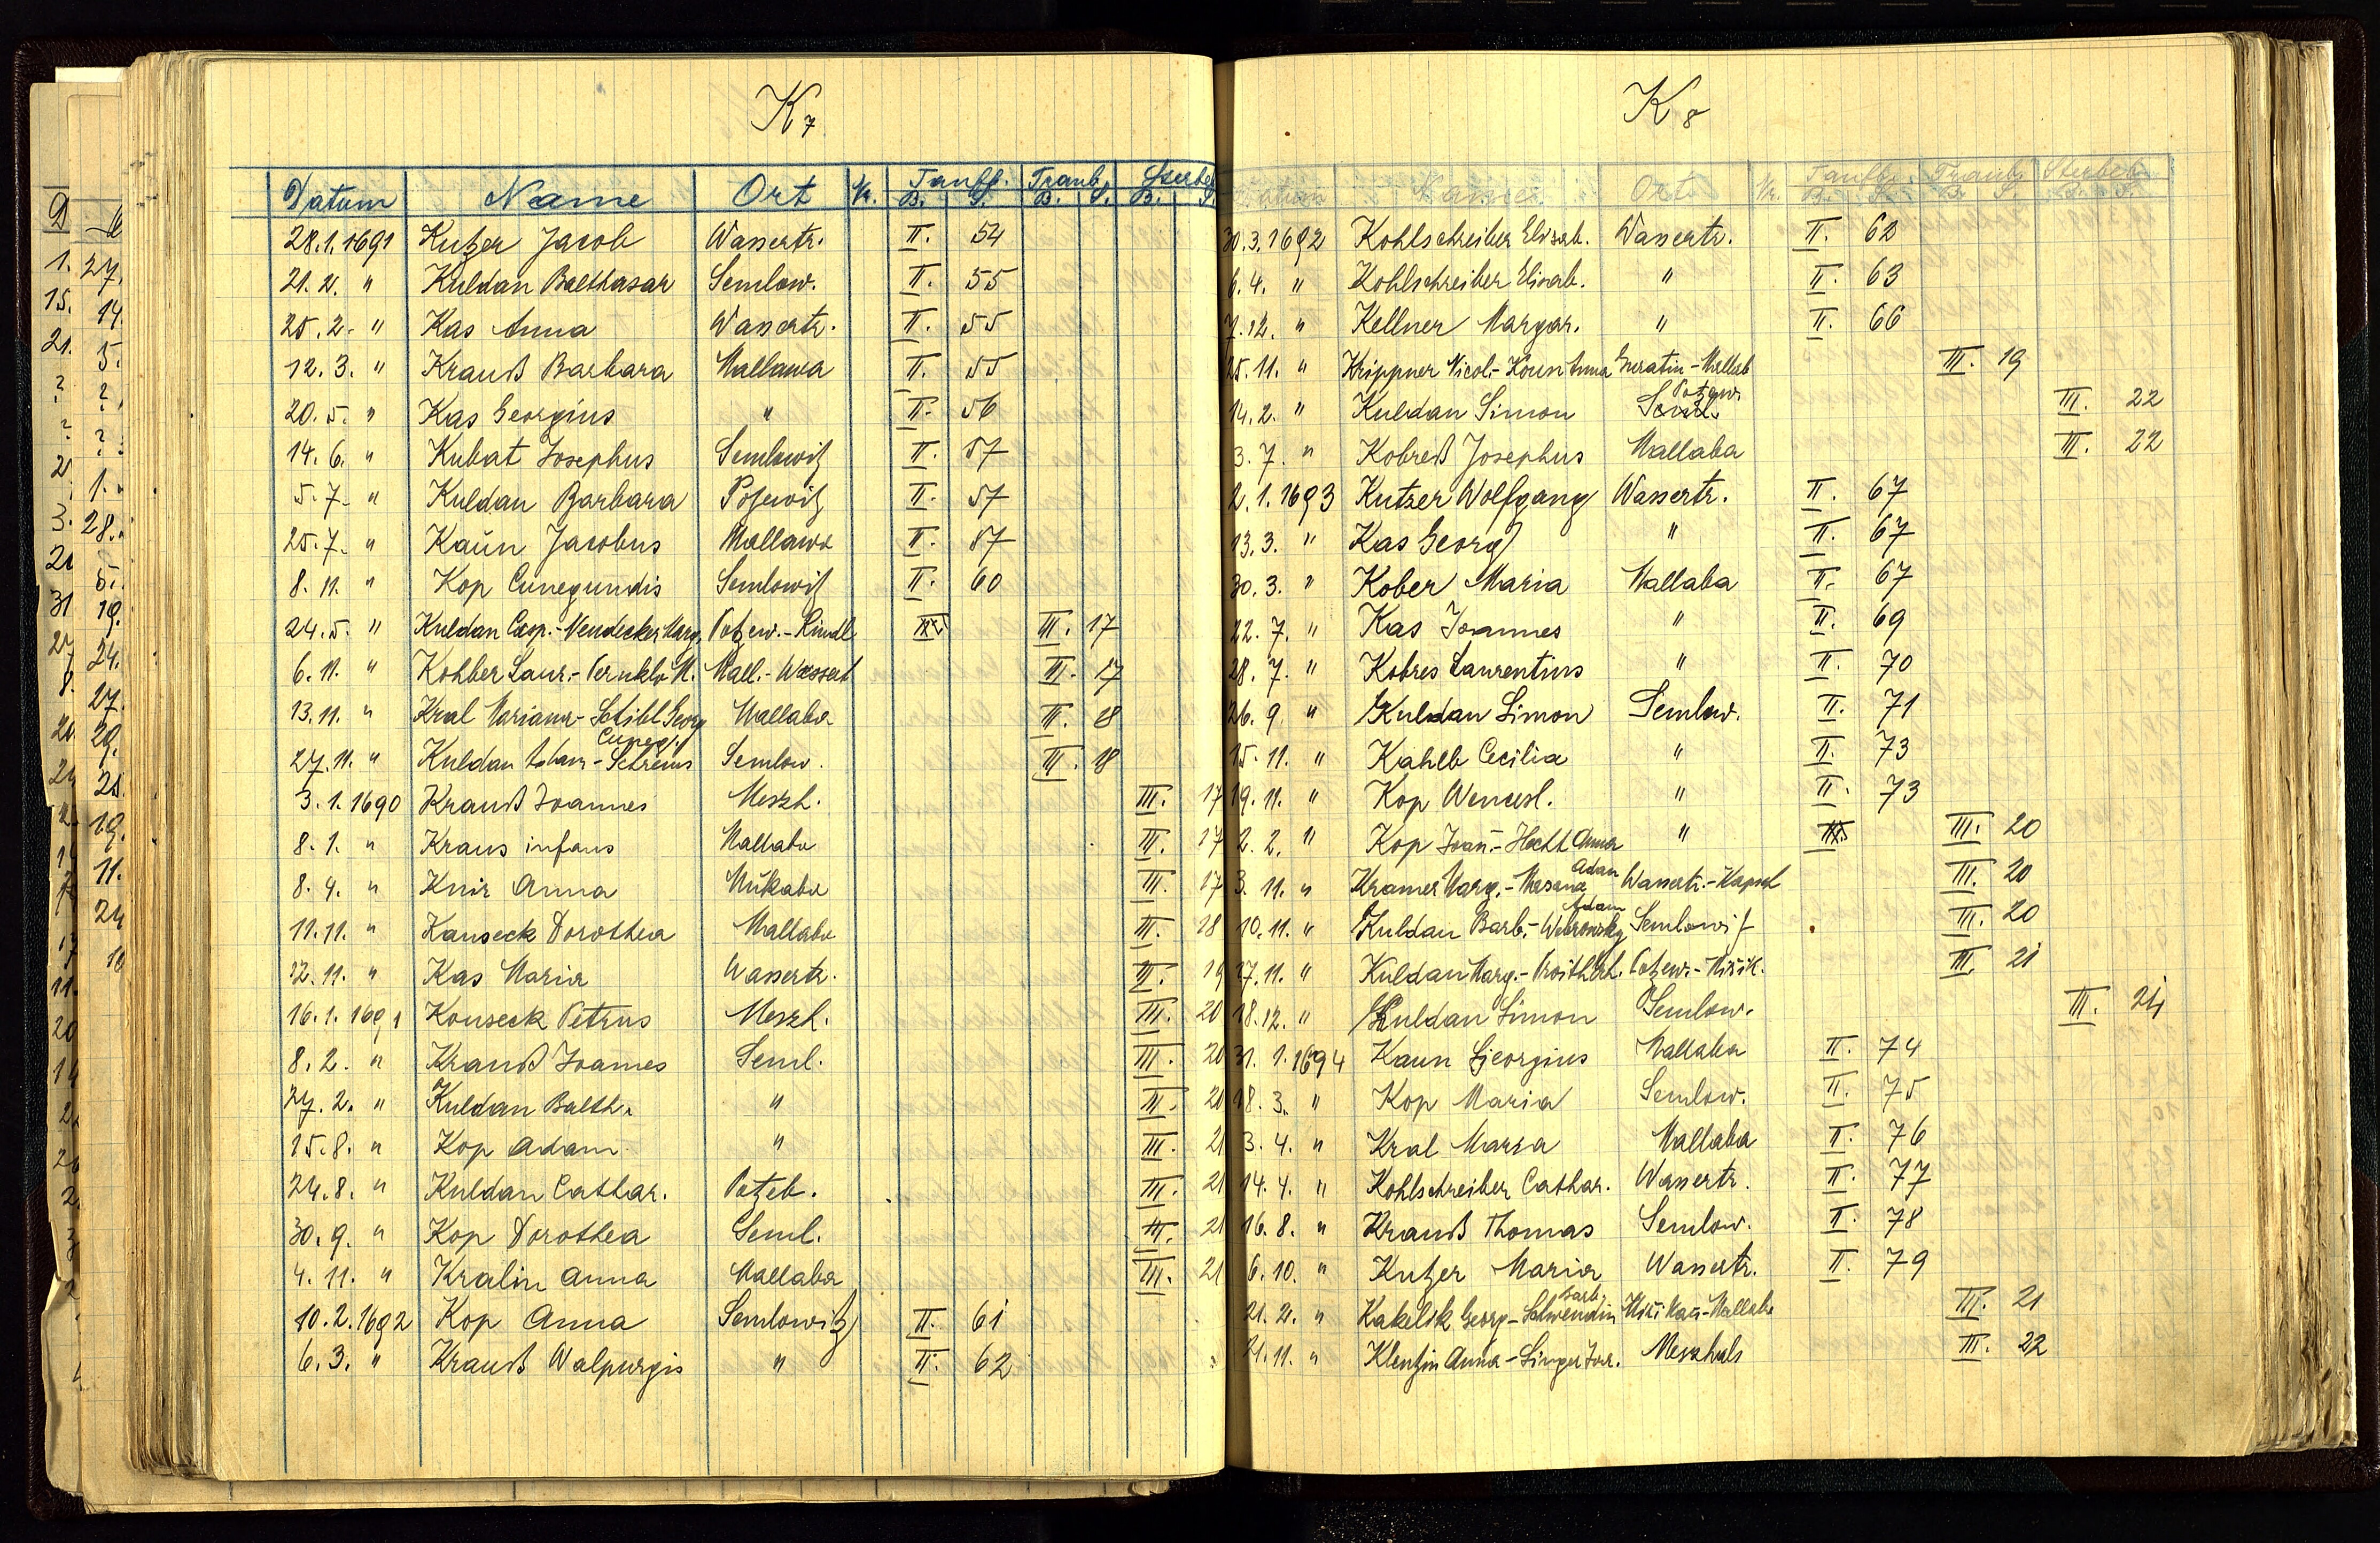 K 7
Datum Name Ort Nr. Taufb. B. S. Traub. B. S. Sterbeb. B. S.
28.1.1691 Kutzer Jacob Wassertr. II. 54
21.2. " Kuldan Balthasar Semlow. II. 55
25.2. " Kas Anna Wassertr. II. 55
12.3. " Krauß Barbara Mallawa II. 55
20.5. " Kas Georgius " II. 56
14.6. " Kubat Josephus Semlowitz II. 57
5.7. " Kuldan Barbara Potzewitz II. 57
25.7. " Kaun Jacobus Mallawa II. 57
8.11. " Kop Cunegundis Semlowitz II. 60
24.5. " Kuldan Casp.- Marg. Potzew.- Rindl III. 17
6.11. " Kohlber Laur.- M. Mall.- Wassert III. 17
13.11. " Kral Mariana - Schibl Georg Mallaba III. 18
27.11. " Kuldan Adam - Cuneg. Semlow. III. 18
3.1.1690 Krauß Joannes Meszh. III. 17
8.1. " Kraus infans Mallaba III. 17
8.4. " Knir Anna III. 17
11.11. " Kauseck Dorothea Mallaba III. 18
12.11. " Kas Maria Wassertr. III. 19
16.1.1691 Kouseck Petrus Meszh. III. 20
8.2. " Krauß Joannes Seml. III. 20
27.2. " Kuldan Balth. " III. 20
15.8. " Kop Adam " III. 21
24.8. " Kuldan Cathar. Potzeb. III. 21
30.9. " Kop Dorothea Seml. III. 21
4.11. " Kralin Anna Mallaba III. 21
10.2.1692 Kop Anna Semlowitz II. 61
6.3. " Krauß Walpurgis " II. 62
K 8
Datum Name Ort Nr. Taufb. B. S. Traub. B. S. Sterbeb. B. S.
30.3.1692 Kohlschreiber Elisab. Wassertr. II. 62
6.4. " Kohlschreiber Elisab. " II. 63
7.12. " Kellner Margar. " II. 66
25.11. " Krippner Nicol.- Anna - Mallab III. 19
14.2. " Kuldan Simon Potzew. III. 22
3.7. " Kobreß Josephus Mallaba III. 22
2.1.1693 Kutzer Wolfgang Wassertr. II. 67
13.3. " Kas Georg " II. 67
30.3. " Kober Maria Mallaba II. 67
22.7. " Kas Joannes " II. 69
28.7. " Kobres Laurentius " II. 70
26.9 " Kuldan Simon Semlow. II. 71
15.11. " Kahlb Cecilia " II. 73
19.11. " Kop Wencesl. " II. 73
2.2. " Kop Joan.- Hecht Anna " III. 20
3.11. " Kramer Marg.- Adam Wassertr.- III. 20
10.11. " Kuldan Barb.- Adam Semlowitz III. 20
27.11. " Kuldan Marg.- Potzew.- III. 21
18.12. " Kuldan Simon Semlow. III. 24
31.1.1694 Kaun Georgius Mallaba II. 74
18.3. " Kop Maria Semlow. II. 75
3.4. " Kral Maria Mallaba II. 76
14.4. " Kohlschreiber Cathar. Wassertr. II. 77
16.8. " Krauß Thomas Semlow. II. 78
6.10. " Kutzer Maria Wassertr. II. 79
21.2. " Kakelik Georg - Schwendin Barb. - Mallaba III. 21
21.11. " Klentzin Anna - Singer Meszhals III. 22